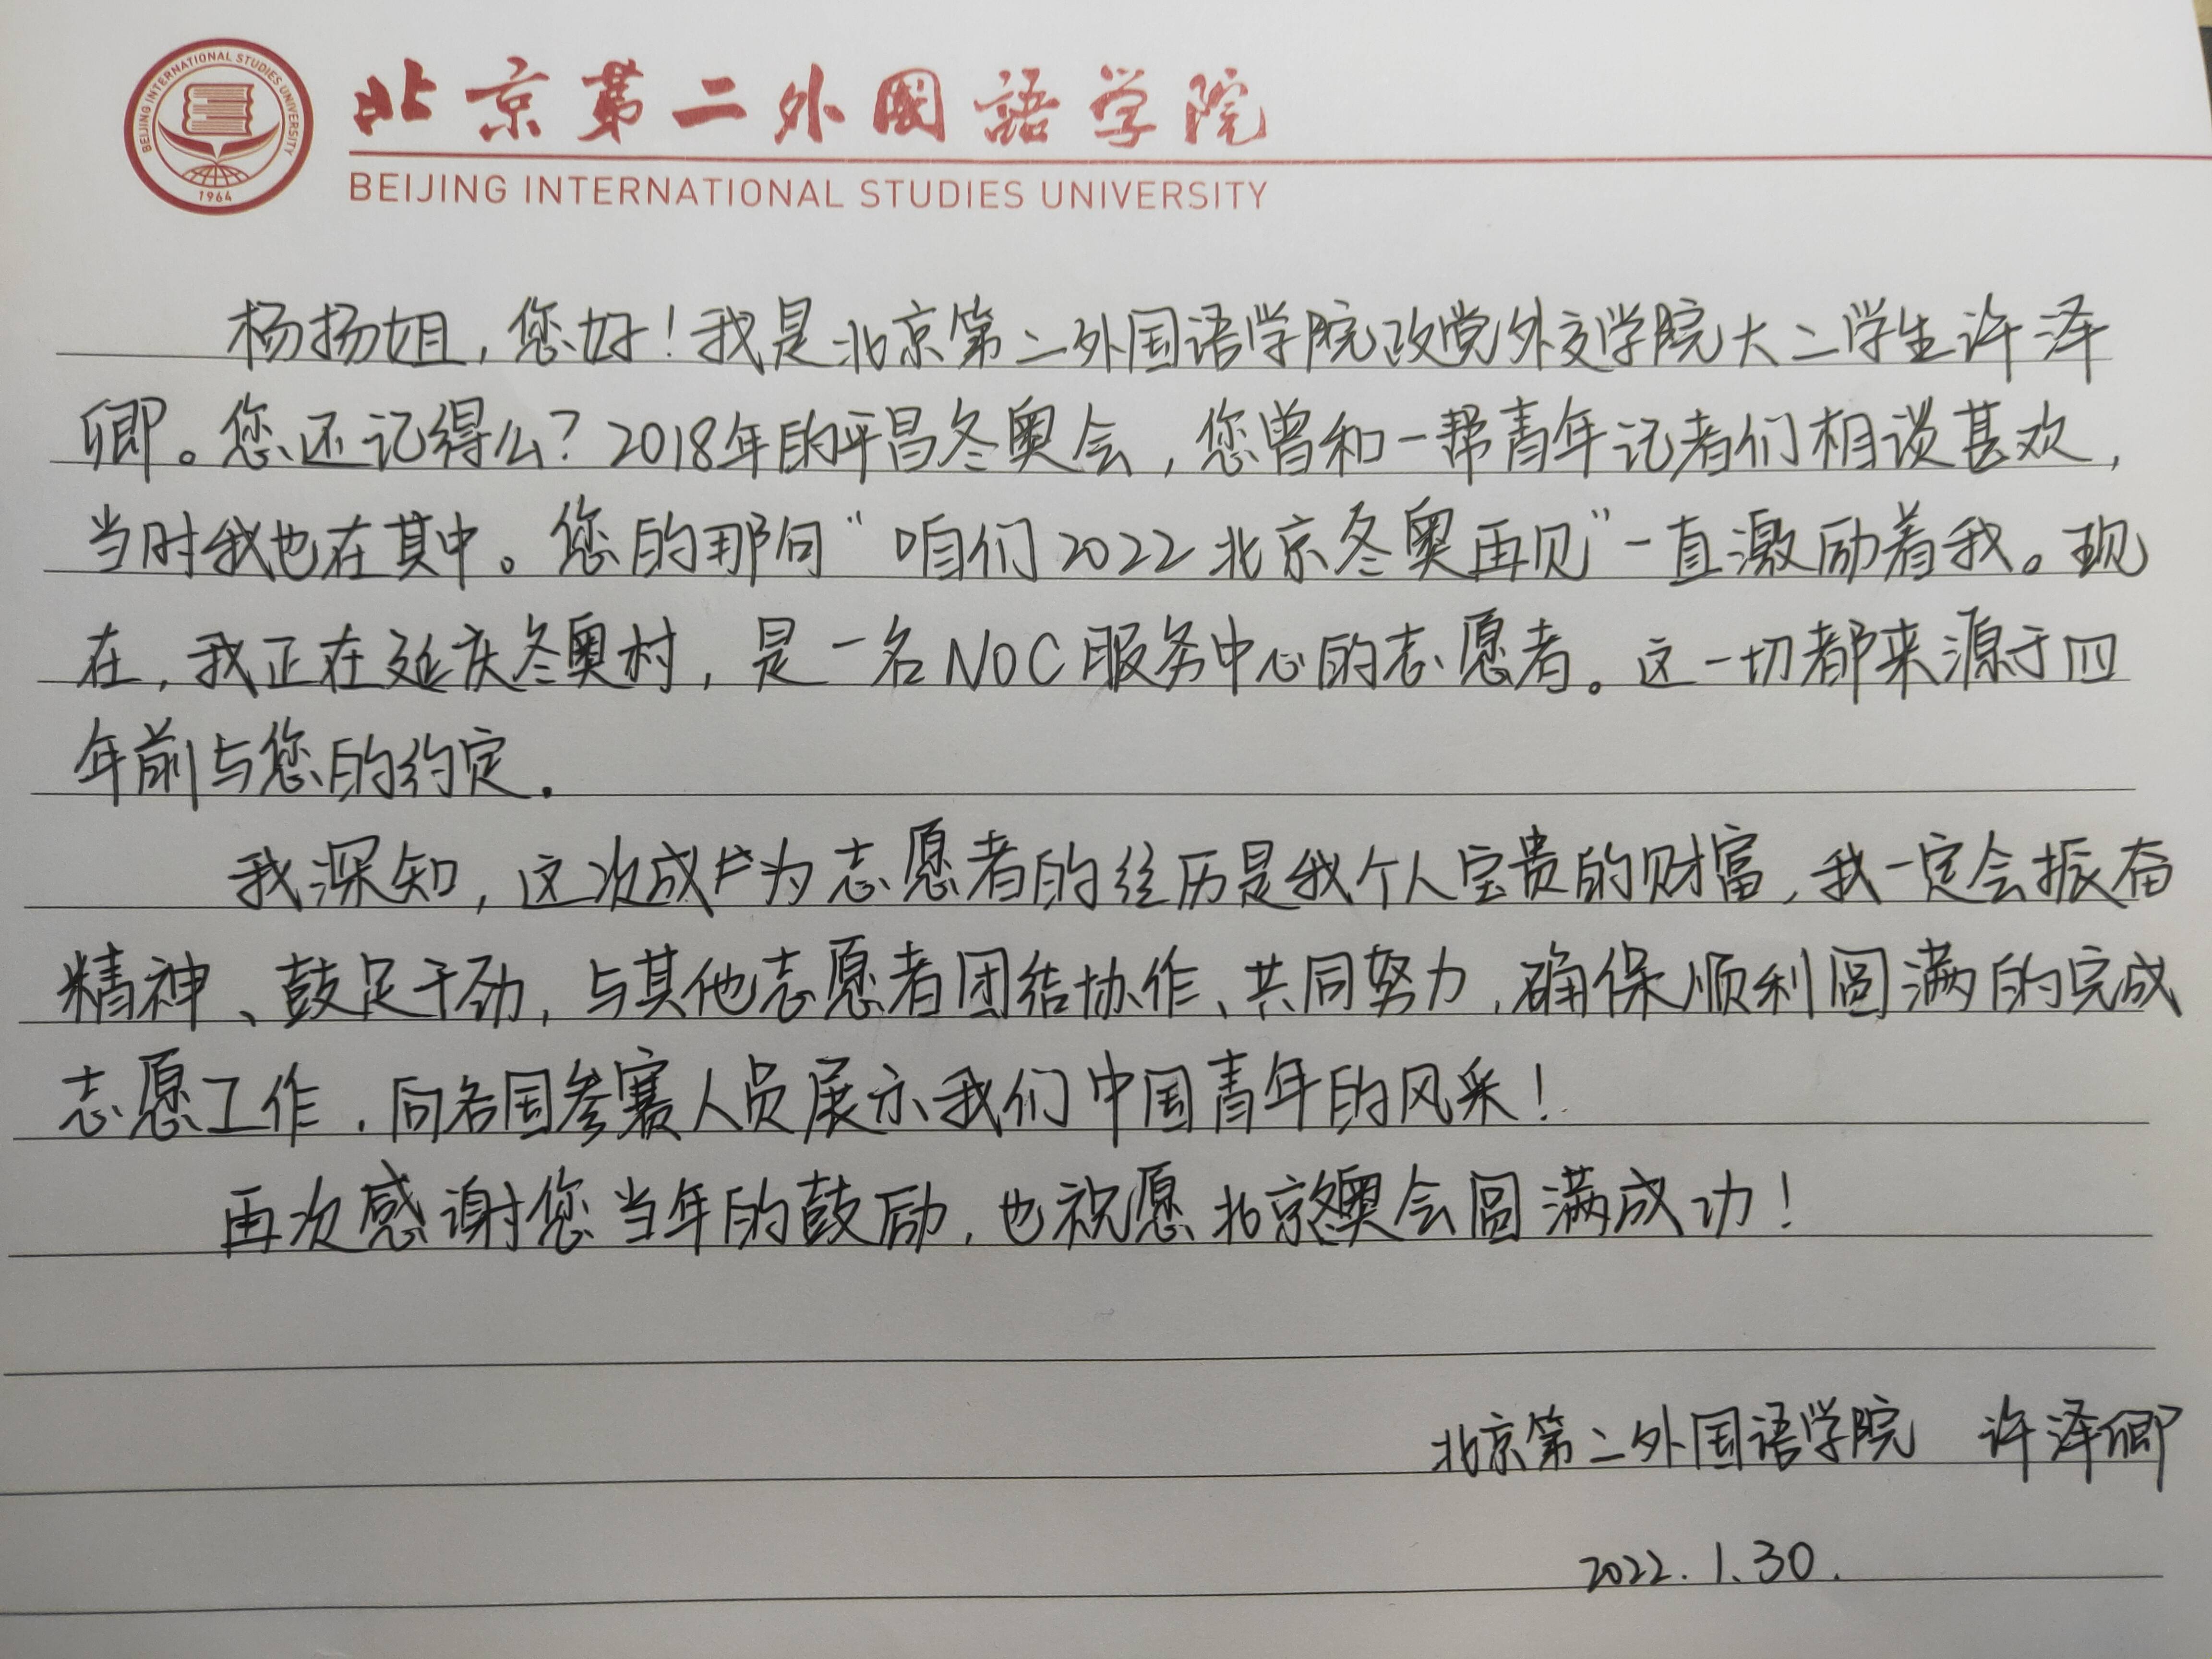 BEIJING INTERNATIONAL STUDIES UNIVERSITY
1964
北京第二外国語学院
BEIJING INTERNATIONAL STUDIES UNIVERSITY
杨扬姐，您好！我是北京第二外国语学院政党外交学院大二学生许泽
卿。您还记得么？2018年的平昌冬奥会，您曾和一帮青年记者们相谈甚欢，
当时我也在其中。您的那句“咱们2022北京冬奥再见”一直激励着我。现
在，我正在延庆冬奥村，是一名NOC服务中心的志愿者。这一切都来源于四
年前与您的约定.
我深知，这次成为志愿者的经历是我个人宝贵的财富，我一定会振奋
精神、鼓足干劲，与其他志愿者团结协作、共同努力，确保顺利圆满的完成
志愿工作，向各国参赛人员展示我们中国青年的风采！
再次感谢您当年的鼓励，也祝愿北京冬奥会圆满成功！
北京第二外国语学院 许泽卿
2022.1.30.